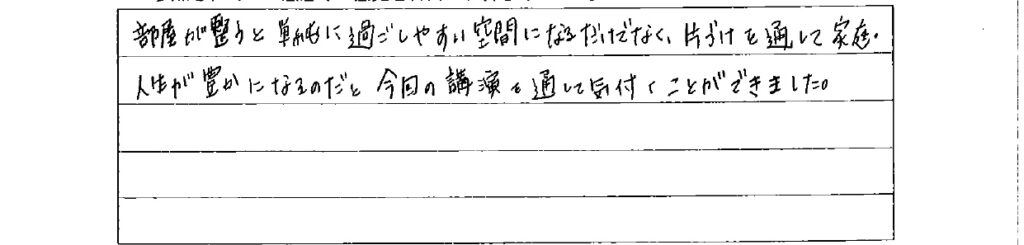 部屋が整うと単純に過ごしやすい空間になるだけでなく、片づけを通して家庭・
人生が豊かになるのだと今回の講演を通して気付くことができました。